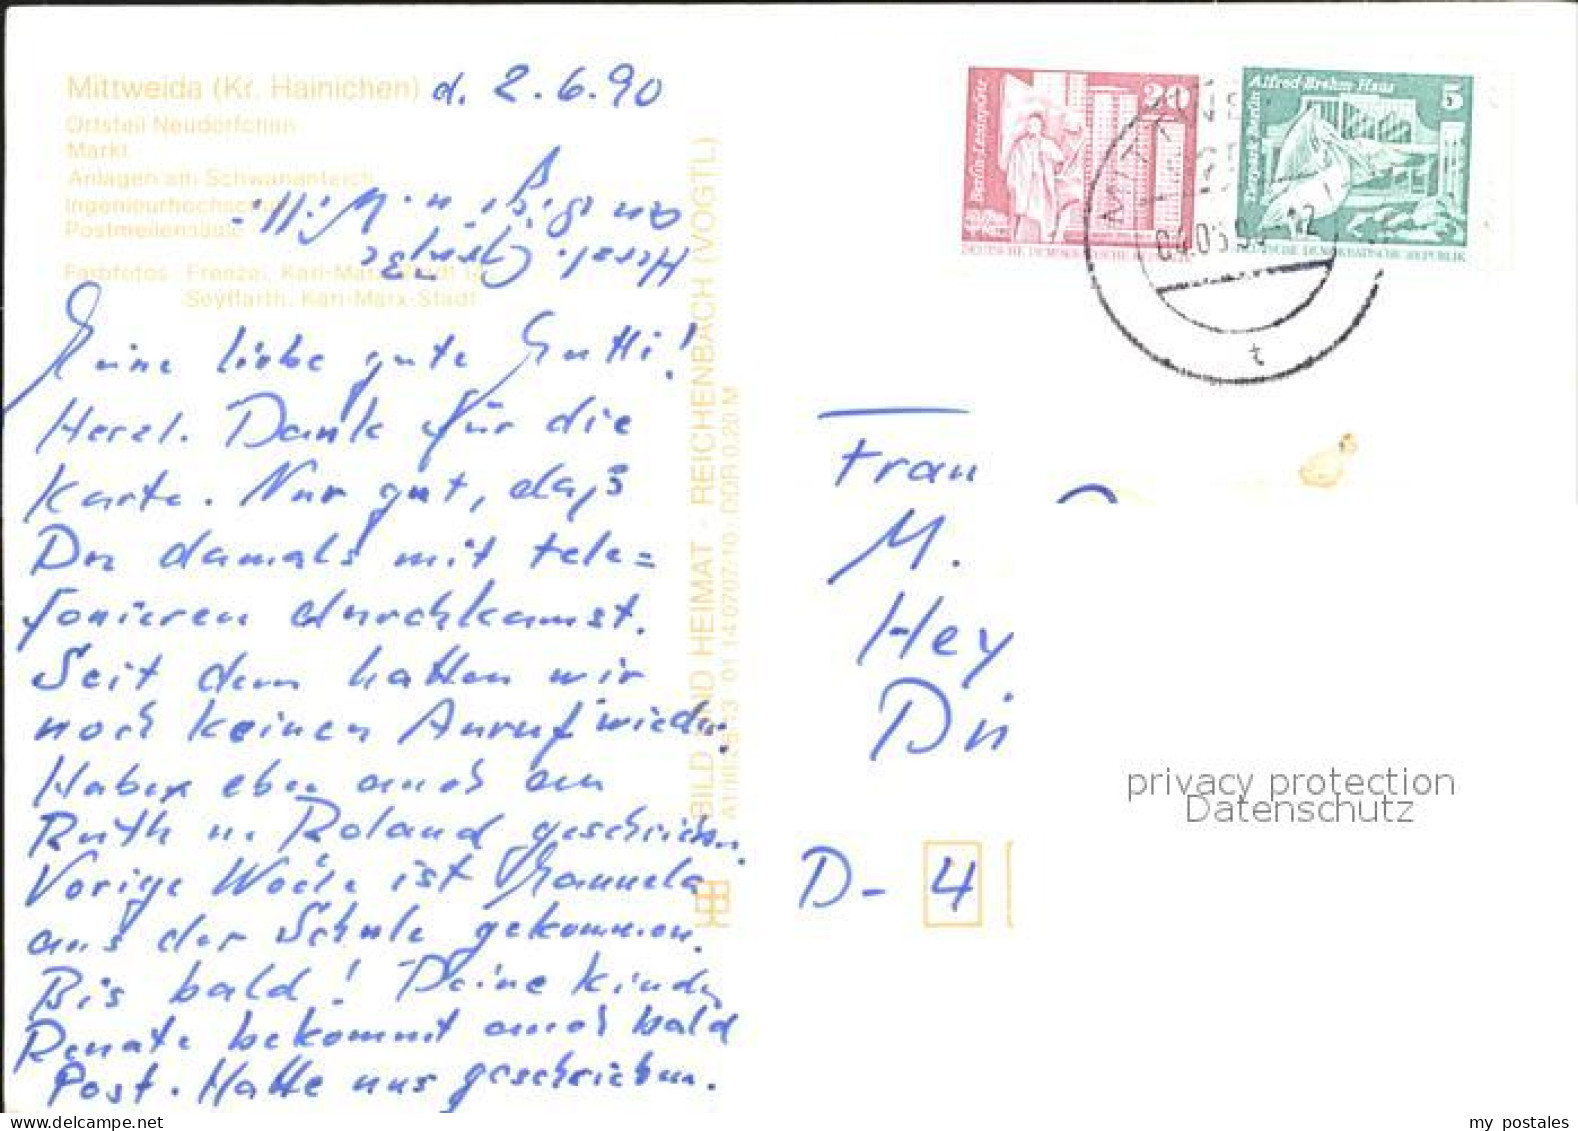 Mittweida (Kr. Hainichen) d. 2.6.90
Ortsteil Neudörfchen
Markt
Anlagen am Schwanenteich
Ingenieurhochschule
Postmeilensäule
Farbfotos: Frenzel, Karl-Marx-Stadt
Seyffarth, Karl-Marx-Stadt
Herzl. Grüße
an u. Willi.
Meine liebe gute Gutti!
Herzl. Dank für die
Karte. Nur gut, daß
Du damals mit tele=
fonieren durchkamst.
Seit dem hatten wir
noch keinen Anruf wieder.
Haben eben auch an
Ruth u. Roland geschrieben.
Vorige Woche ist Manuela
aus der Schule gekommen.
Bis bald! Deine Kinder
Renate bekommt auch bald
Post. Hatte uns geschrieben.
BILD UND HEIMAT · REICHENBACH (VOGTL)
A1/III/26/13 01 14 0707/10 DDR 0,20 M
20
Berlin-Leninplatz
DEUTSCHE DEMOKRATISCHE REPUBLIK
Alfred-Brehm-Haus 5
Tierpark Berlin
DEUTSCHE DEMOKRATISCHE REPUBLIK
MITTWE
-12
t
Frau
M.
Hey
D
privacy protection
Datenschutz
D- 4
my postales